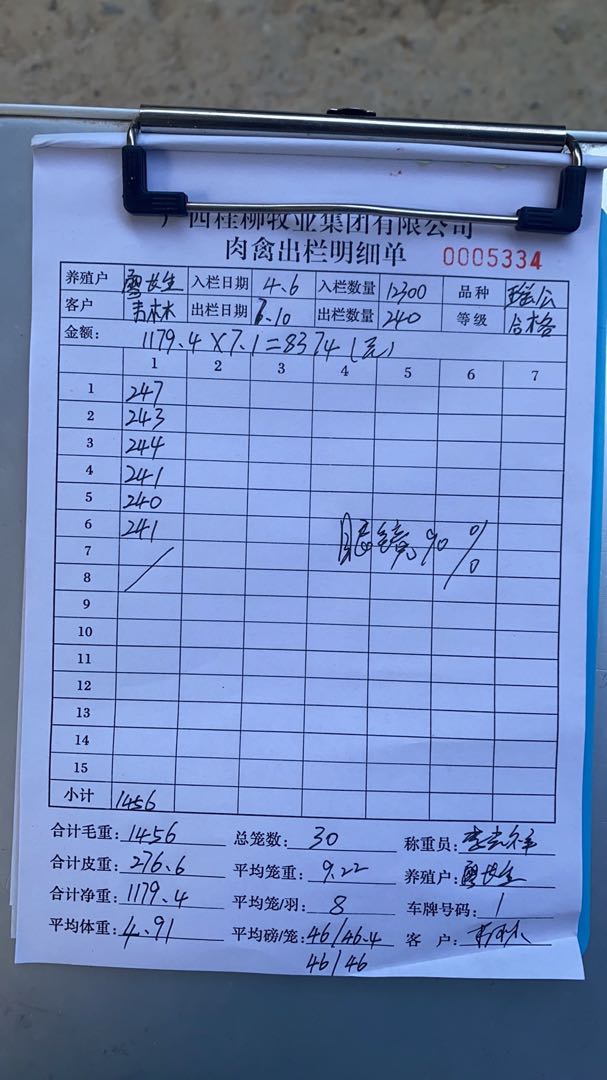 广西桂柳牧业集团有限公司
肉禽出栏明细单 0005334
养殖户 廖长生 入栏日期 4.6 入栏数量 12300 品种 瑶公
客户 出栏日期 7.10 出栏数量 240 等级 合格
金额: 1179.4×7.1=8374(元)
1 2 3 4 5 6 7
1 247
2 243
3 244
4 241
5 240
6 241 90%
7
8
9
10
11
12
13
14
15
小计 1456
合计毛重: 1456 总笼数: 30 称重员:
合计皮重: 276.6 平均笼重: 9.22 养殖户: 廖长生
合计净重: 1179.4 平均笼/羽: 8 车牌号码: 1
平均体重: 4.91 平均磅/笼: 46/46.4 客户:
46/46